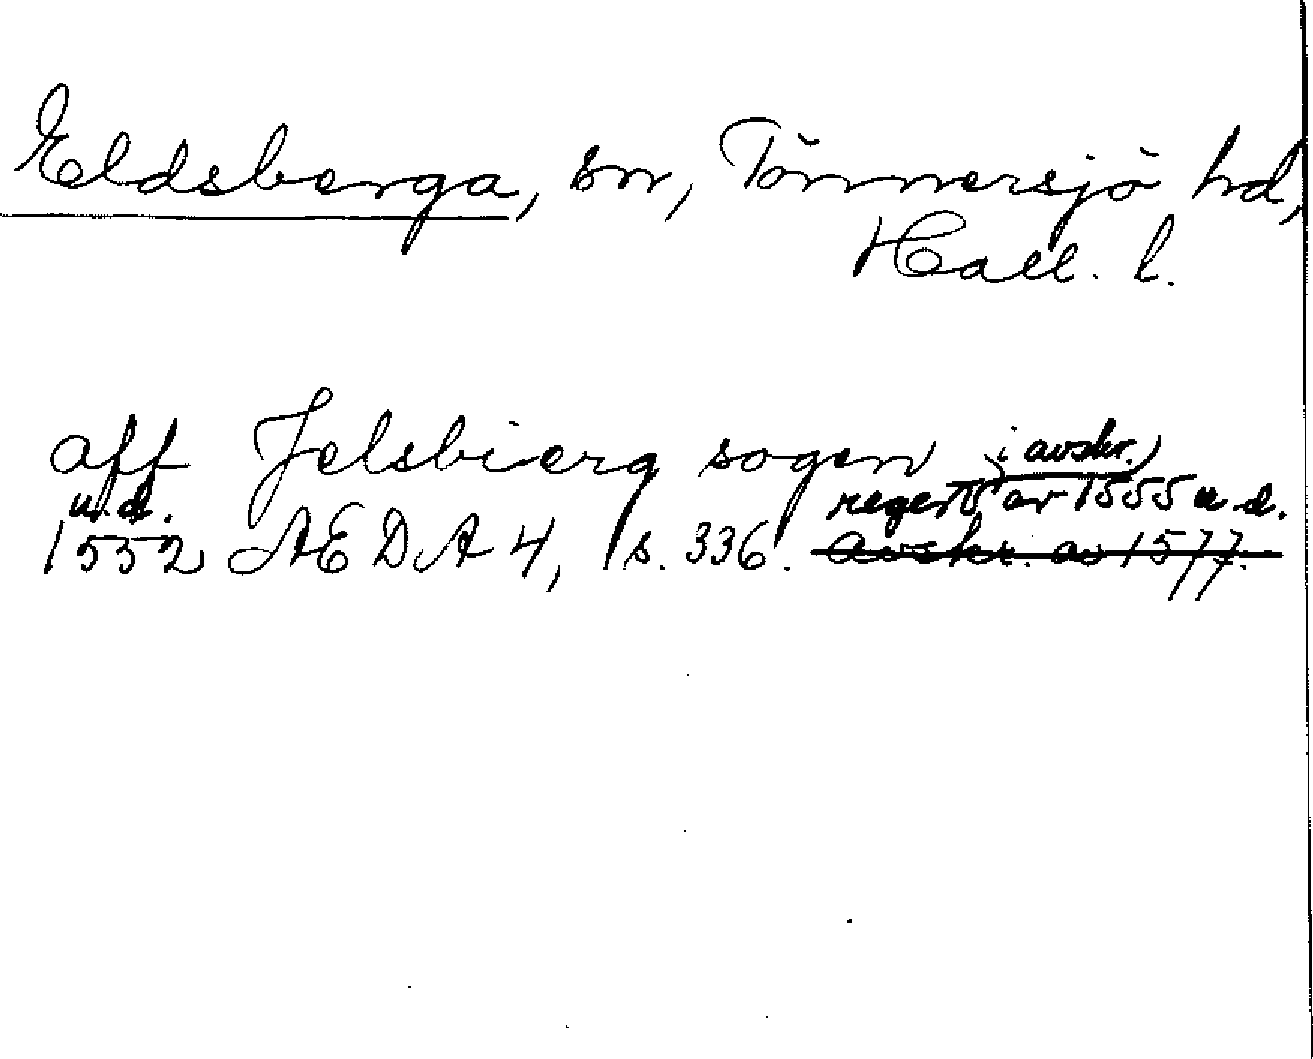 Eldsberga, sn, Tönnersjö hd,
Hall. l.
aff Jelsbierg sogen (i avskr.)
u.d. regest av 1555 u.d.
1552 ÆDA 4, s. 336. avskr. av 1577.